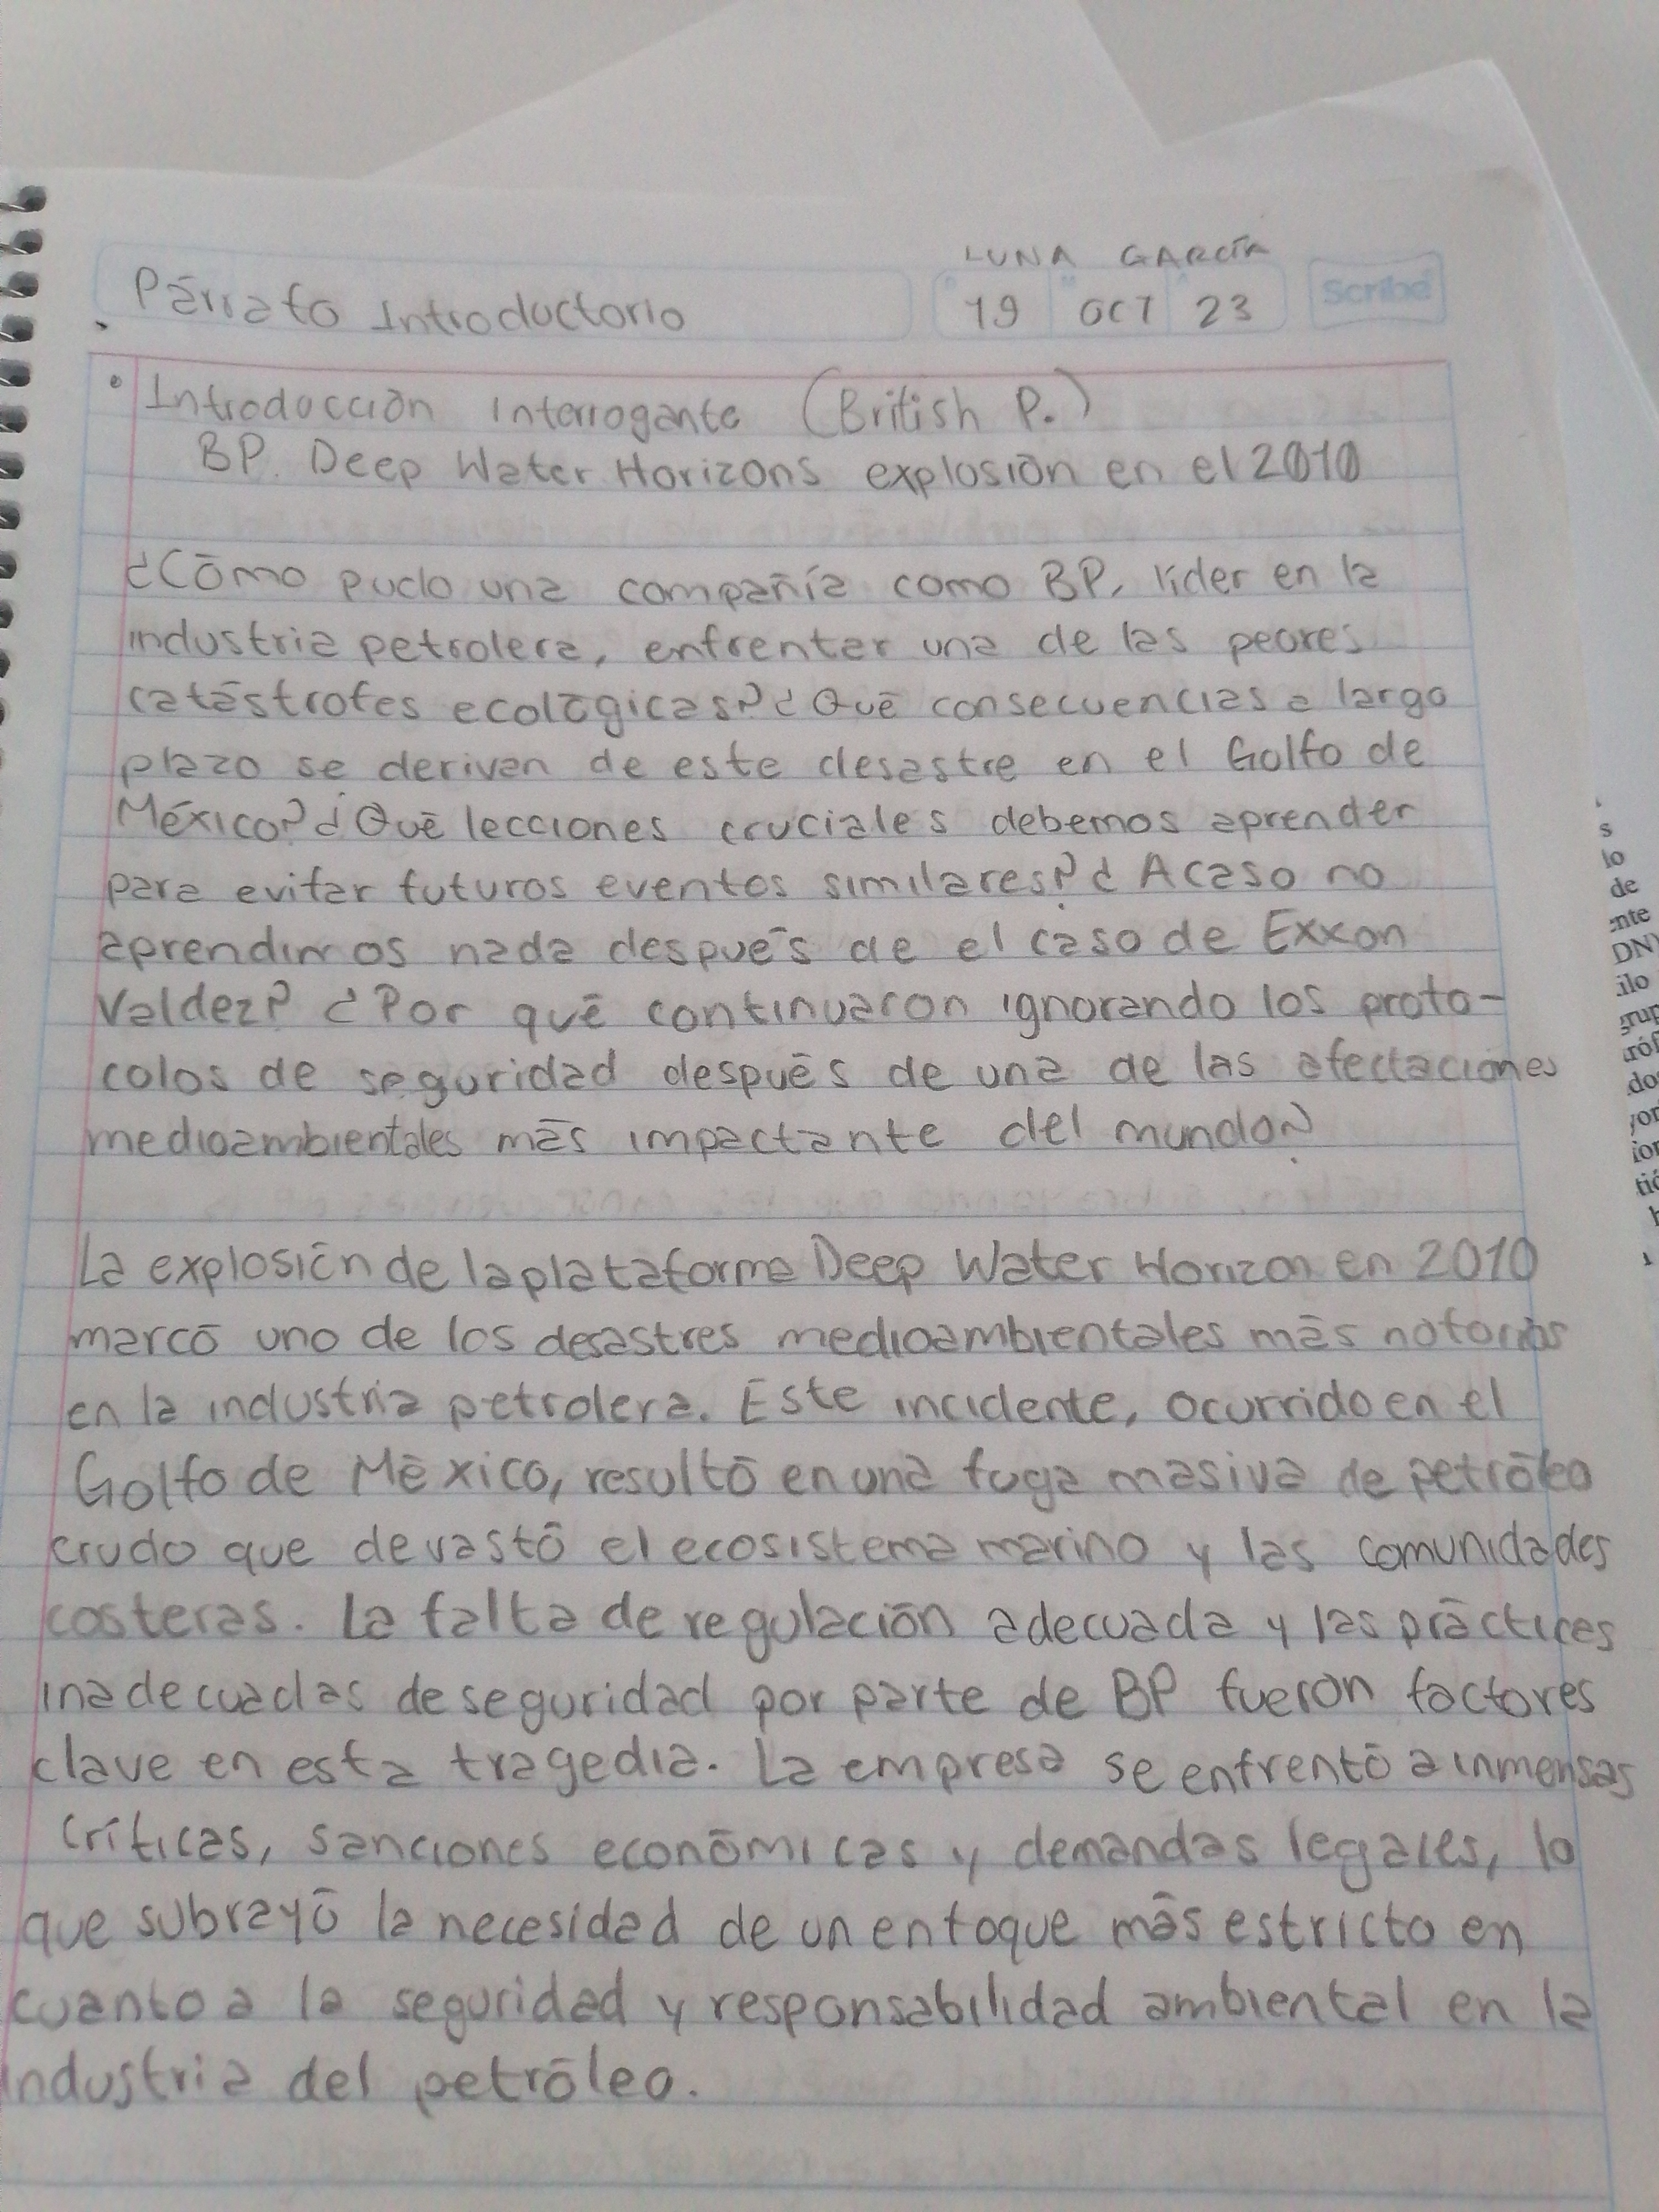 LUNA GARCÍA
Párrafo Introductorio 19 OCT 23 Scribe
• Introducción Interrogante (British P.)
BP. Deep Water Horizons explosión en el 2010
¿Cómo pudo una compañía como BP, líder en la
industria petrolera, enfrentar una de las peores
catástrofes ecológicas? ¿Qué consecuencias a largo
plazo se derivan de este desastre en el Golfo de
México? ¿Qué lecciones cruciales debemos aprender
para evitar futuros eventos similares? ¿Acaso no
aprendimos nada después de el caso de Exxon
Valdez? ¿Por qué continuaron ignorando los proto-
colos de seguridad después de una de las afectaciones
medioambientales más impactante del mundo?
La explosión de la plataforma Deep Water Horizon en 2010
marcó uno de los desastres medioambientales más notorios
en la industria petrolera. Este incidente, ocurrido en el
Golfo de México, resultó en una fuga masiva de petróleo
crudo que devastó el ecosistema marino y las comunidades
costeras. La falta de regulación adecuada y las prácticas
inadecuadas de seguridad por parte de BP fueron factores
clave en esta tragedia. La empresa se enfrentó a inmensas
críticas, sanciones económicas y demandas legales, lo
que subrayó la necesidad de un enfoque más estricto en
cuanto a la seguridad y responsabilidad ambiental en la
industria del petróleo.
s
lo
de